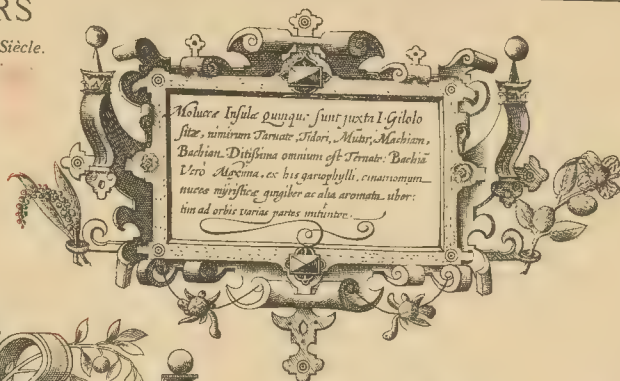 RS
Siècle.
Moluccæ Insulæ quinque sunt juxta I. Gilolo
sitæ, nimirum Tarnate, Tidori, Mutir, Machiam,
Bachian. Ditissima omnium est Ternate: Bachiā
Vero Maxima. ex his gariophylli, cinamomum
nuces myristicæ gingiber ac alia aromata uber:
tim ad orbis varias partes mituntur.